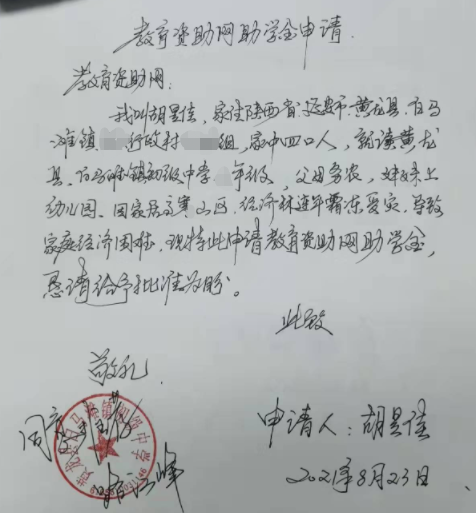 教育资助网助学金申请.
教育资助网:
我叫胡昱佳,家住陕西省延安市黄龙县.白马
滩镇 行政村 组,家中四口人,就读黄龙
县.白马滩镇初级中学 年级,父母务农,妹妹上
幼儿园、因家居高寒山区.经济林连年霜冻受灾.导致
家庭经济困难.现特此申请教育资助网助学金,
恳请给予批准为盼。
此致
敬礼
同意
申请人:胡昱佳
2021年8月23日.